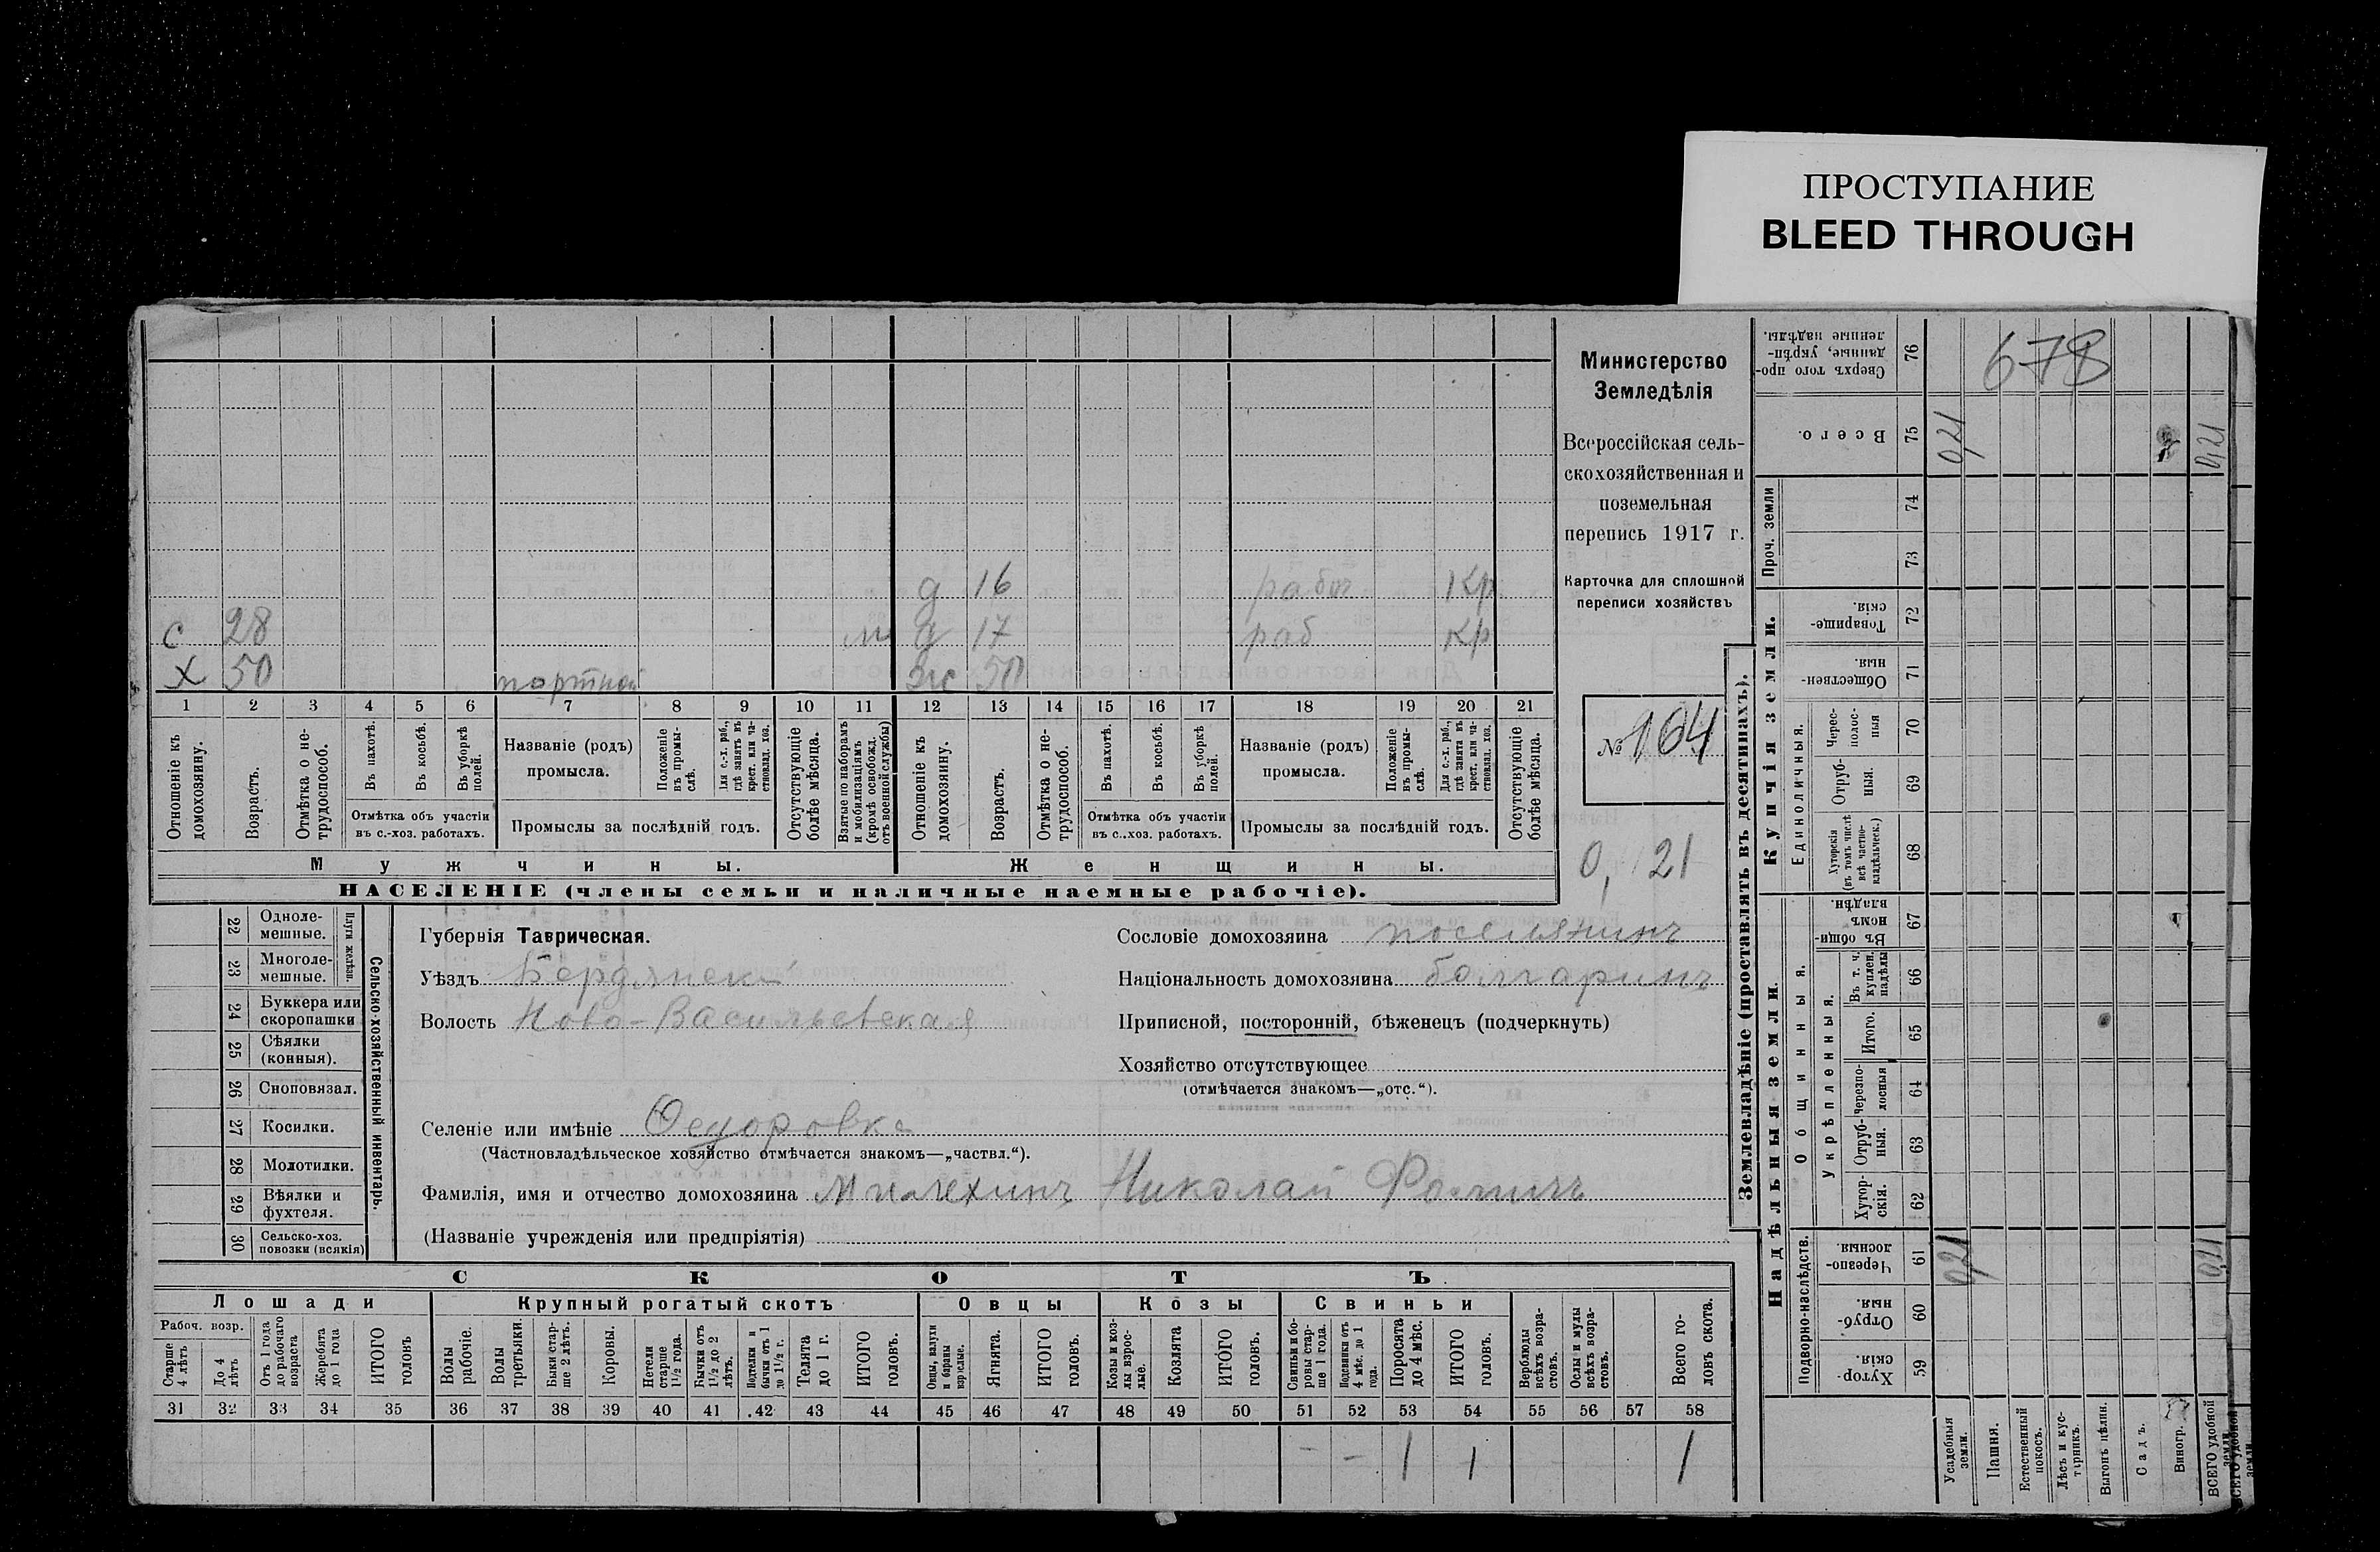 ПРОСТУПАНИЕ
BLEED THROUGH
678
Министерство
Земледѣлія
Всероссійская сель-
скохозяйственная и
поземельная
перепись 1917 г.
Карточка для сплошной
переписи хозяйствъ
№ 164
0,21
д 16 рабоч Кр
с 28 м д 17 раб Кр
х 50 портной ж 50
1 2 3 4 5 6 7 8 9 10 11 12 13 14 15 16 17 18 19 20 21
Отношеніе къ домохозяину.
Возрастъ.
Отмѣтка о не-трудоспособ.
Въ пахотѣ.
Въ косьбѣ.
Въ уборкѣ полей.
Отмѣтка объ участіи
въ с.-хоз. работахъ.
Названіе (родъ)
промысла.
Положеніе въ промы-слѣ.
Для с.-х. раб., гдѣ занятъ въ крест. или ча-стновлад. хоз.
Промыслы за послѣдній годъ.
Отсутствующіе болѣе мѣсяца.
Взятые по наборамъ и мобилизаціямъ (кромѣ освобожд. отъ военной службы)
Отношеніе къ домохозяину.
Возрастъ.
Отмѣтка о не-трудоспособ.
Въ пахотѣ.
Въ косьбѣ.
Въ уборкѣ полей.
Отмѣтка объ участіи
въ с.-хоз. работахъ.
Названіе (родъ)
промысла.
Положеніе въ промы-слѣ.
Для с.-х. раб., гдѣ занята въ крест. или ча-стновлад. хоз.
Промыслы за послѣдній годъ.
Отсутствующіе болѣе мѣсяца.
Мужчины. Женщины.
НАСЕЛЕНІЕ (члены семьи и наличные наемные рабочіе).
Сельско-хозяйственный инвентарь.
Плуги желѣзн.
22 Одноле-мешные.
23 Многоле-мешные.
24 Буккера или скоропашки
25 Сѣялки (конныя).
26 Сноповязал.
27 Косилки.
28 Молотилки.
29 Вѣялки и фухтеля.
30 Сельско-хоз. повозки (всякія)
Губернія Таврическая.
Уѣздъ Бердянскій
Волость Ново-Васильевская
Селеніе или имѣніе Ѳедоровка
(Частновладѣльческое хозяйство отмѣчается знакомъ—„частвл.“).
Фамилія, имя и отчество домохозяина Николай Фомичъ
(Названіе учрежденія или предпріятія)
Сословіе домохозяина поселянинъ
Національность домохозяина болгаринъ
Приписной, посторонній, бѣженецъ (подчеркнуть)
Хозяйство отсутствующее
(отмѣчается знакомъ—„отс.“).
СКОТЪ
Лошади Крупный рогатый скотъ Овцы Козы Свиньи
Рабоч. возр.
Старше 4 лѣтъ
До 4 лѣтъ
Отъ 1 года до рабочаго возраста
Жеребята до 1 года
ИТОГО головъ
Волы рабочіе.
Волы третьяки.
Быки стар-ше 2 лѣтъ.
Коровы.
Нетели старше 1½ года.
Бычки отъ 1½ до 2 лѣтъ.
Подтелки и бычки отъ 1 до 1½ г.
Телята до 1 г.
ИТОГО головъ.
Овцы, валухи и бараны взрослые.
Ягнята.
ИТОГО головъ.
Козы и коз-лы взрос-лые.
Козлята
ИТОГО головъ.
Свиньи и бо-ровы стар-ше 1 года.
Подсвинки отъ 4 мѣс. до 1 года.
Поросята до 4 мѣс.
ИТОГО головъ.
Верблюды всѣхъ возра-стовъ.
Ослы и мулы всѣхъ возра-стовъ.
Всего го-ловъ скота.
31 32 33 34 35 36 37 38 39 40 41 42 43 44 45 46 47 48 49 50 51 52 53 54 55 56 57 58
- - 1 1 1
Землевладѣніе (проставлять въ десятинахъ).
Надѣльныя земли.
Купчія земли.
Проч. земли
Сверхъ того про-данные, укрѣп-ленные надѣлы. 76
Всего. 75 0,21 0,21
74
73
Товарище-скія. 72
Обществен-ныя. 71
Единоличныя.
Черес-полос-ныя 70
Отруб-ныя. 69
Хуторскія (въ томъ числѣ всѣ частно-владѣльческ.) 68
Общинныя.
Въ общи-номъ владѣн. 67
Укрѣпленныя.
Въ т. ч. куплен. надѣлы 66
Итого. 65
Черезпо-лосныя 64
Отруб-ныя. 63
Хутор-скія. 62
Подворно-наслѣдств.
Черезпо-лосныя. 61 0,21 0,21
Отруб-ныя. 60
Хутор-скія. 59
Усадебныя земли.
Пашня.
Естественный покосъ.
Лѣсъ и кус-тарникъ.
Выгонъ цѣлин.
Садъ.
Виногр.
ВСЕГО удобной земли.